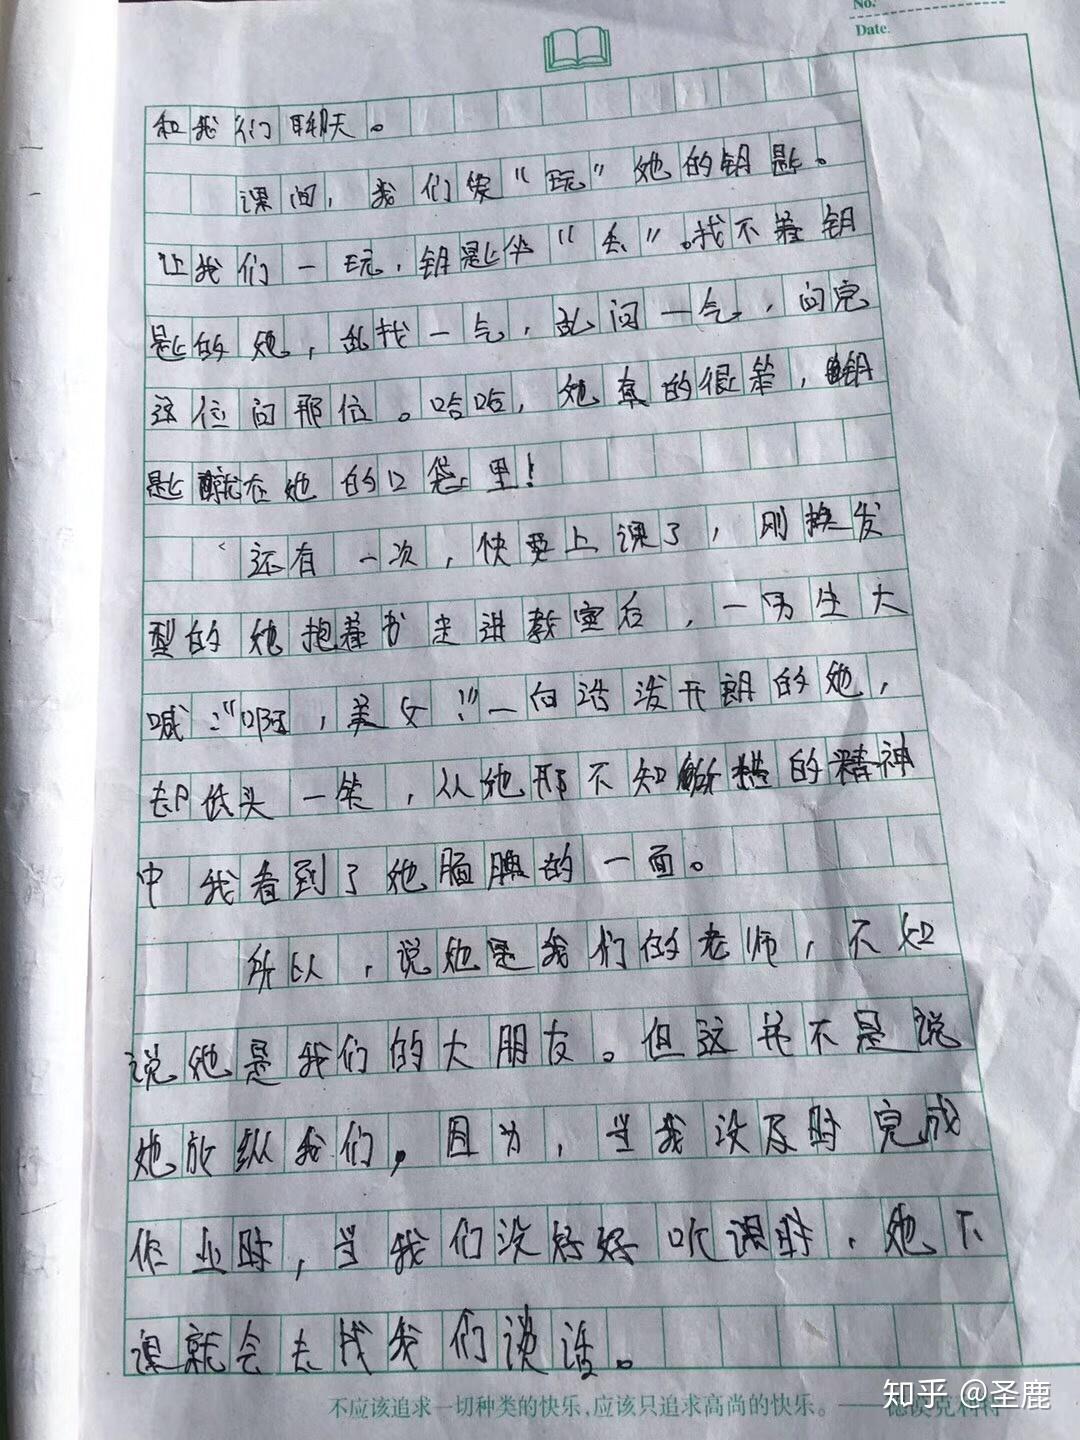 No.
Date.
和我们聊天。
课间，我们爱“玩”她的钥匙。
让我们一玩，钥匙坐“丢”。找不着钥
匙的她，乱找一气，乱问一气，问完
这位问那位。哈哈，她真的很笨，钥
匙就在她的口袋里！
还有一次，快要上课了，刚换发
型的她抱着书走进教室后，一男生大
喊：“啊，美女！”一向活泼开朗的她，
却低头一笑，从她那不知所措的精神
中我看到了她腼腆的一面。
所以，说她是我们的老师，不如
说她是我们的大朋友。但这并不是说
她放纵我们，因为，当我没及时完成
作业时，当我们没好好听课时，她下
课就会去找我们谈话。
不应该追求一切种类的快乐，应该只追求高尚的快乐。——德谟克利特
知乎 @圣鹿